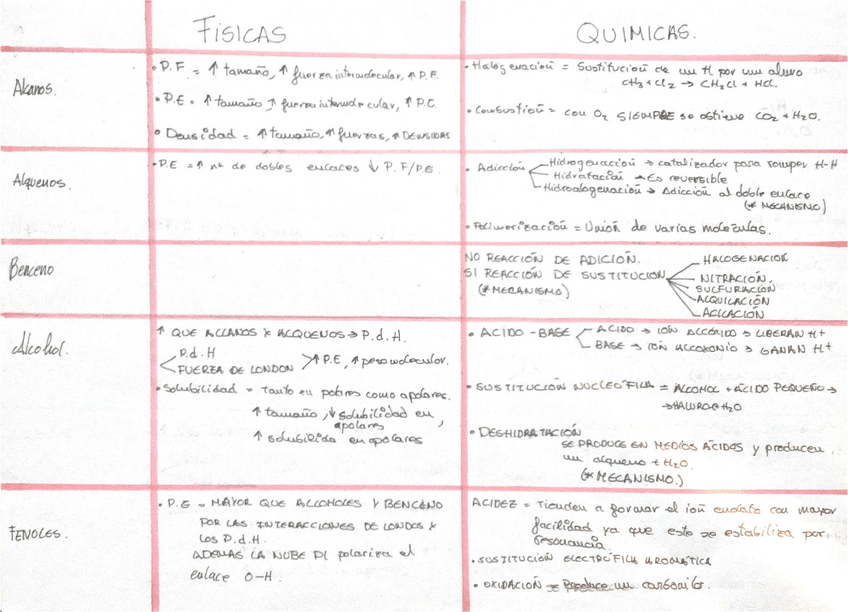 FÍSICAS
QUIMICAS.
Alkanos.
• P.F = ↑ tamaño, ↑ fuerza intermolecular, ↑ P.F.
• P.E = ↑ tamaño ↑ fuerza intermolecular, ↑ P.E.
• Densidad = ↑ tamaño, ↑ fuerzas, ↑ DENSIDAD
• Halogenación = Sustitución de un H por un
CH3 + Cl2 → CH3Cl + HCl.
• Combustión = con O2 SIEMPRE se obtiene CO2 + H2O.
Alquenos.
• P.E = ↑ nº de dobles enlaces ↓ P.F/P.E.
• Adicción
Hidrogenación → catalizador para romper H-H
Hidratación → Es reversible
Hidroalogenación → Adicción al doble enlace
(* MECANISMO)
• Polimerización = Unión de varias moleculas.
Benceno
NO REACCIÓN DE ADICIÓN.
SI REACCIÓN DE SUSTITUCION
(* MECANISMO)
HALOGENACION
NITRACIÓN.
SULFURACIÓN
ALQUILACIÓN
ACILACIÓN
Alcohol.
↑ QUE ALCANOS Y ALQUENOS → P.d.H.
P.d.H
FUERZA DE LONDON
↑ P.E, ↑ peso molecular.
• Solubilidad = Tanto en polares como apolares.
↑ tamaño, ↓ solubilidad en
polares
↑ solubilida en apolares
• ACIDO - BASE
ACIDO → IÓN ALCOXIDO → LIBERAN H+
BASE → IÓN ALCOXONIO → GANAN H+
• SUSTITUCIÓN NUCLEÓFILA = ALCOHOL + ÁCIDO PEQUEÑO →
→ HALURO + H2O
• DESHIDRATACIÓN
SE PRODUCE EN MEDIOS ÁCIDOS y producen
un alqueno + H2O.
(* MECANISMO.)
FENOLES.
• P.E = MAYOR QUE ALCOHOLES Y BENCENO
POR LAS INTERACCIONES DE LONDON Y
LOS P.d.H.
ADEMAS LA NUBE PI polariza el
enlace O-H.
ACIDEZ = Tienden a formar el ión enolato con mayor
facilidad ya que este se estabiliza por
resonancia.
• SUSTITUCION ELECTRÓFILA AROMÁTICA
• OXIDACIÓN → Produce un carbonilo.